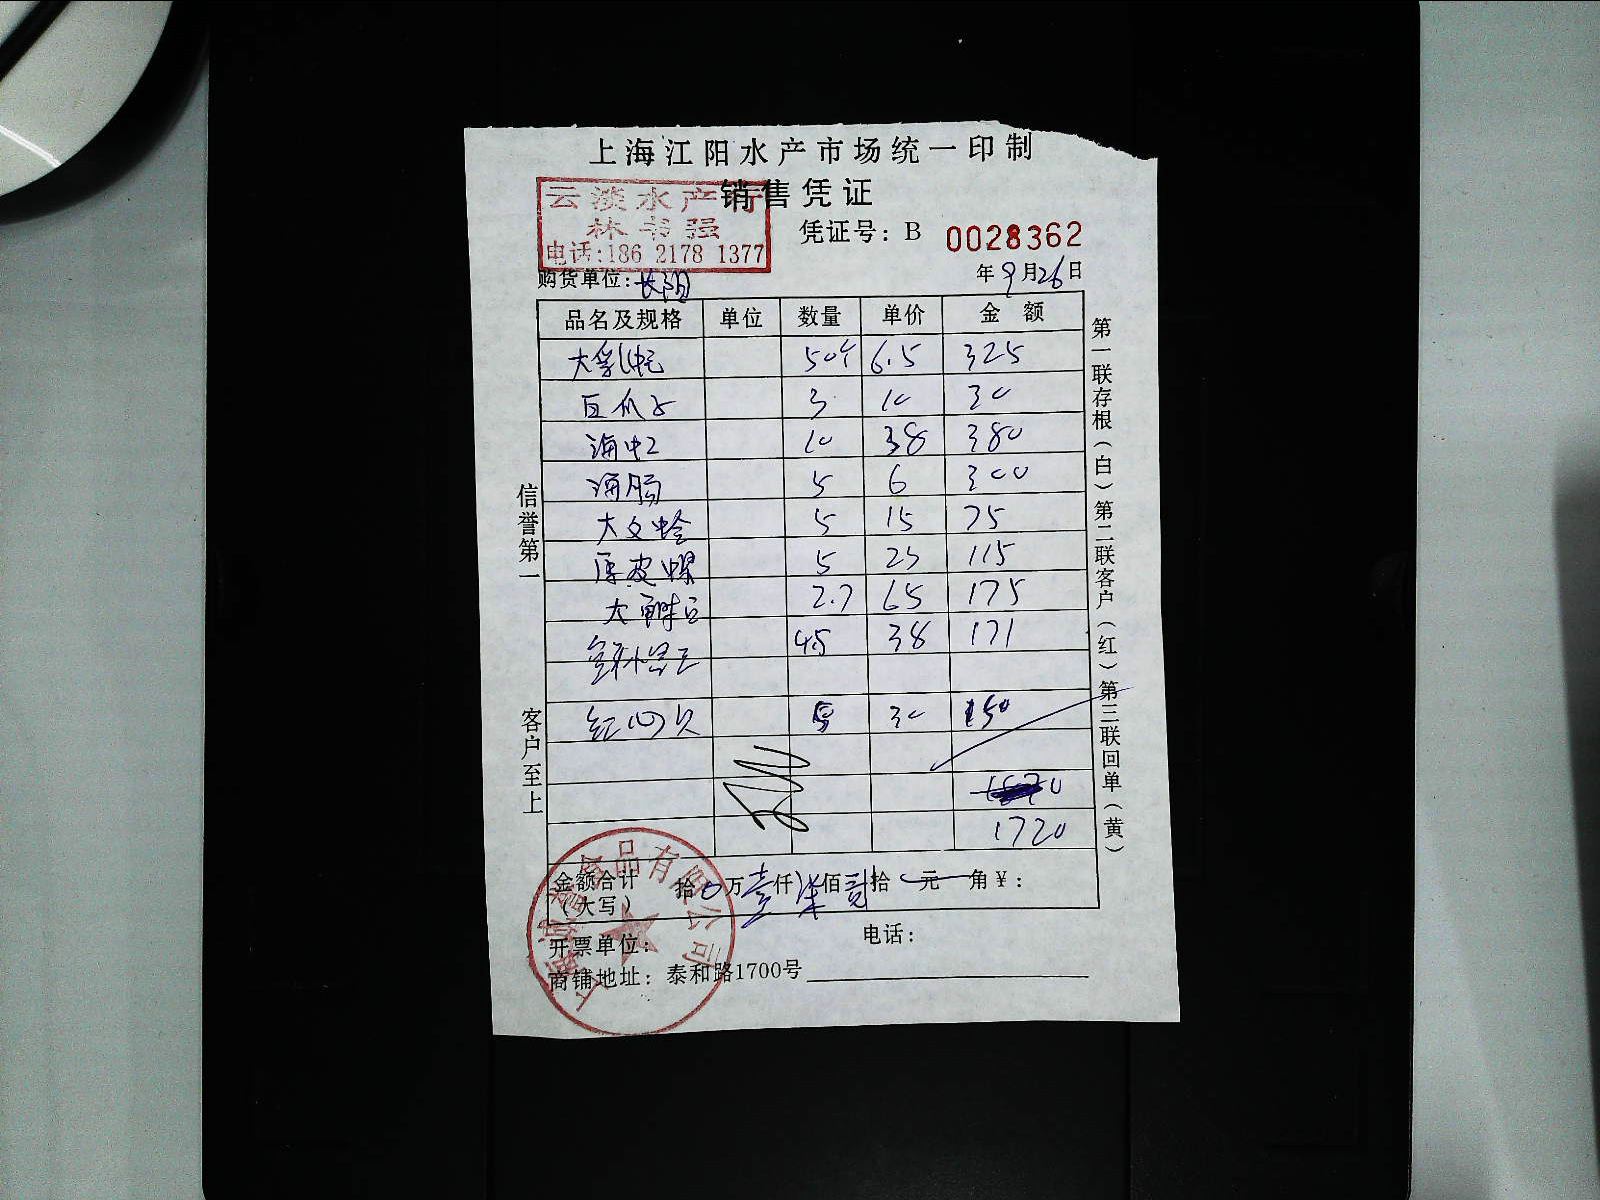 上海江阳水产市场统一印制
销售凭证
云淡水产行
林书强
电话:186 2178 1377
凭证号: B 0028362
购货单位: 长阳
年 9月26日
品名及规格 单位 数量 单价 金额
50个 6.5 325
瓜子 3 10 30
海虹 10 38 380
海肠 5 6 300
大文蛤 5 15 75
厚皮螺 5 23 115
大 2.7 65 175
4.5 38 171
红心贝 5 30 150
1720
金额合计 拾0万壹仟柒佰贰拾 元 角¥:
(大写)
开票单位: 电话:
商铺地址: 泰和路1700号
食品有限公司
信誉第一
客户至上
第一联存根(白)第二联客户(红)第三联回单(黄)